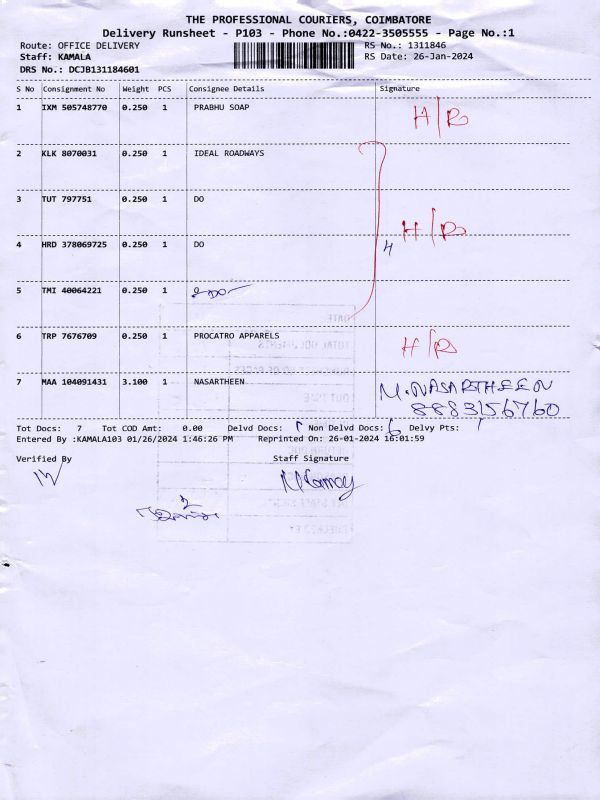 THE PROFESSIONAL COURIERS, COIMBATORE
Delivery Runsheet - P103 - Phone No.:0422-3505555 - Page No.:1
Route: OFFICE DELIVERY RS No.: 1311846
Staff: KAMALA RS Date: 26-Jan-2024
DRS No.: DCJB131184601
S No Consignment No Weight PCS Consignee Details Signature
1 IXM 505748770 0.250 1 PRABHU SOAP H/R
2 KLK 8070031 0.250 1 IDEAL ROADWAYS
3 TUT 797751 0.250 1 DO H/R
4 HRD 378069725 0.250 1 DO 4
5 TMI 40064221 0.250 1 DO
6 TRP 7676709 0.250 1 PROCATRO APPARELS H/R
7 MAA 104091431 3.100 1 NASARTHEEN M.NASARTHEEN
8883156760
Tot Docs: 7 Tot COD Amt: 0.00 Delvd Docs: 1 Non Delvd Docs: 6 Delvy Pts: 1
Entered By :KAMALA103 01/26/2024 1:46:26 PM Reprinted On: 26-01-2024 16:01:59
Verified By Staff Signature